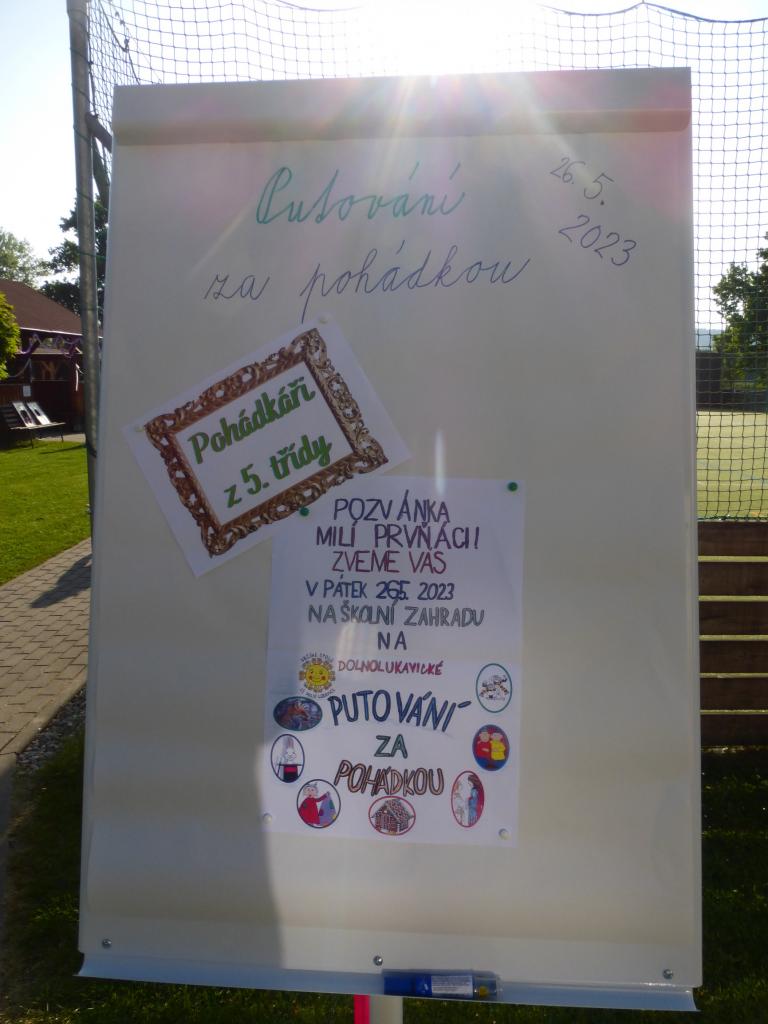 Putování
za pohádkou
26. 5.
2023
Pohádkáři
z 5. třídy
POZVÁNKA
MILÍ PRVŇÁCI!
ZVEME VÁS
V PÁTEK 26.5. 2023
NA ŠKOLNÍ ZAHRADU
NA
DOLNOLUKAVICKÉ
PUTOVÁNÍ
ZA
POHÁDKOU